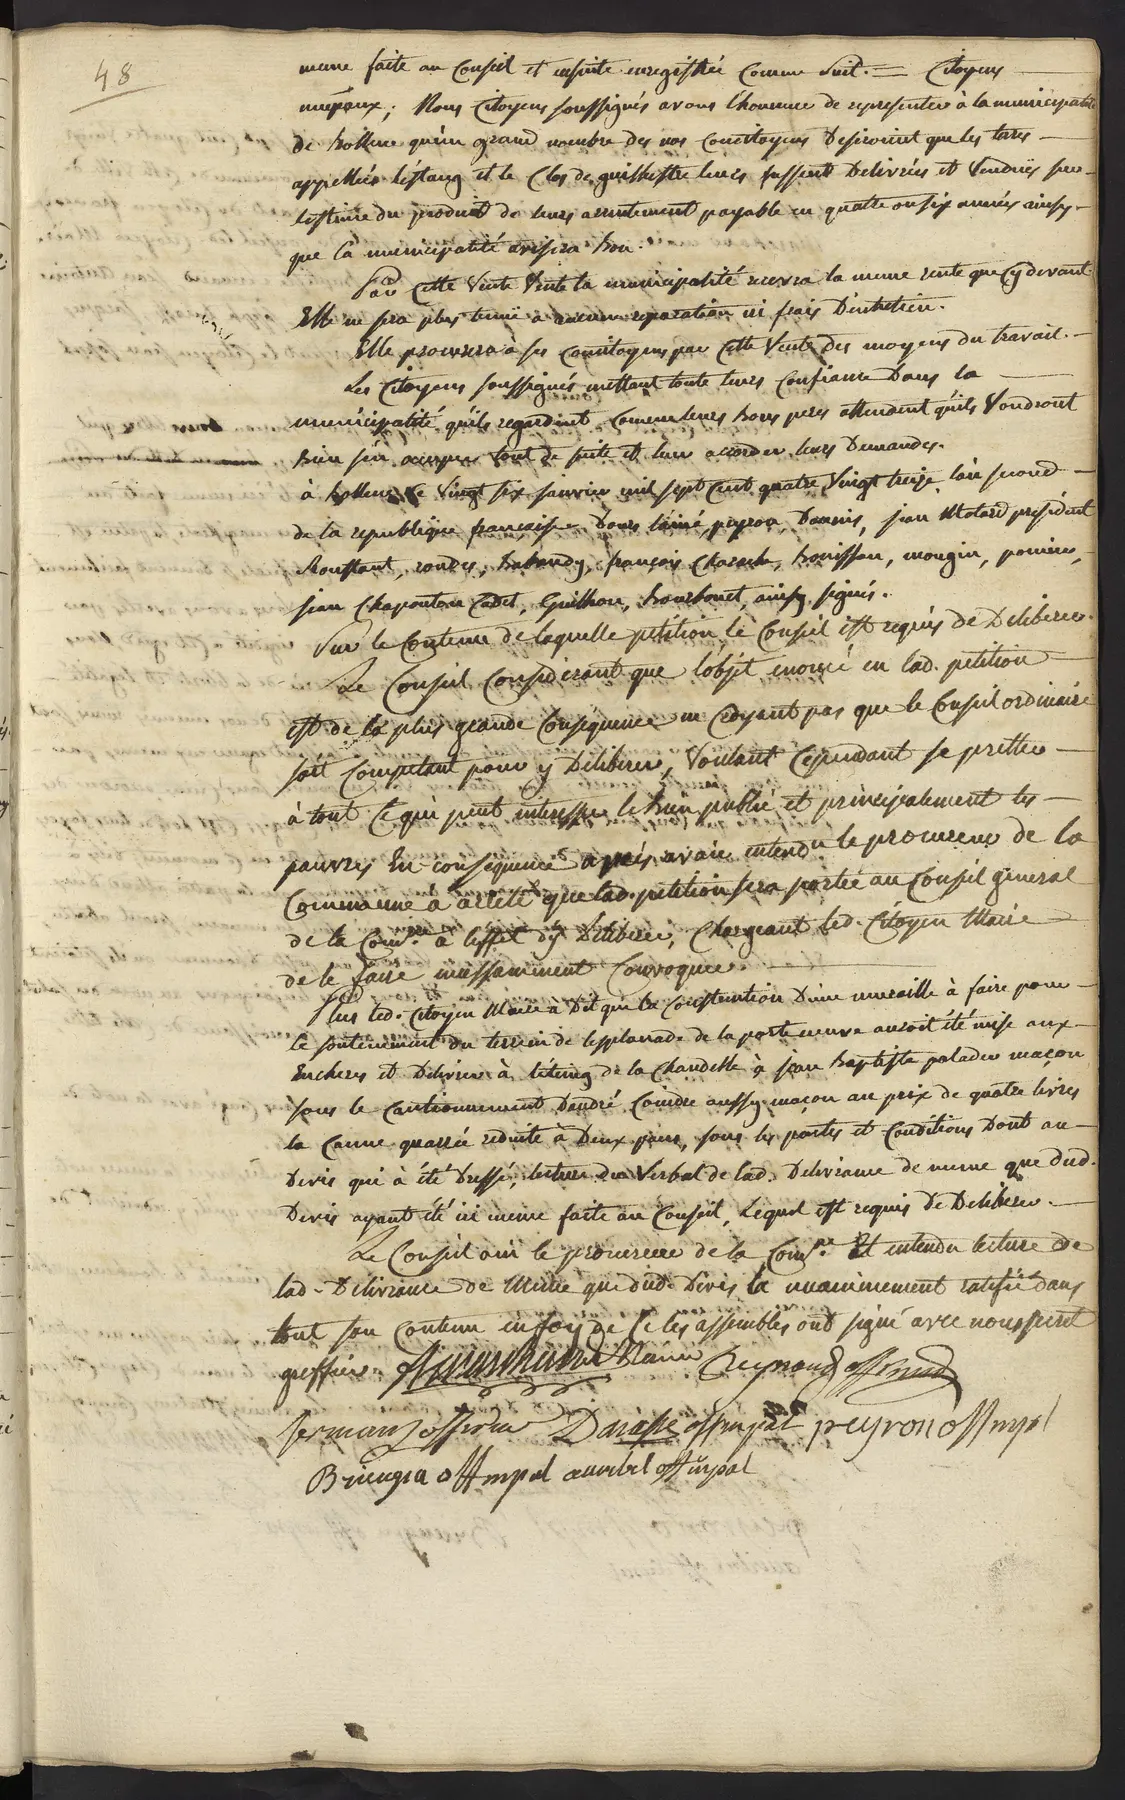 48
meme faite au Conseil et ensuite enregistrée Comme suit. = Citoyens
mup̄aux; Nous Citoyens soussignés avons l'honneur de representer à la municipalité
de Bollene qu'un grand nombre des nos Concitoyens Desiroint que les terres
appellées l'éstang et le Clos de leurs fussent Delivrées et Vendues sur
l'estime du produit de leurs arrentement payable en quatre ou six années ainsy
que la municipalité avisera bon.
Par Cette Vente Vente la municipalité recevra la meme rente que Cy devant
Elle ne sera plus tenue a aucune reparation ni frais D'entretien.
Elle procurera à ses Concitoyens par Cette Vente des moyens du travail.
Les Citoyens soussignés mettant toute leurs Confiance Dans la
municipalité qu'ils regardint Comme leurs bons peres attendent qu'ils Voudront
bien s'en occuper tout de suite et leur accorder leurs Demandes.
à bollene Ce Vingt six janvier mil sept Cent quatre Vingt treize l'an second
de la republique française l'ainé, peyron, jean Motard président
Roustant, rondes, Francois Charach, bonisson, mougin,
jean Chaponton Cadet, Guilhon, bourbonet, ainsy signés.
Sur le Contenu de laquelle petition, le Conseil est requis de Deliberer.
Le Conseil Considerant que l'objet enoncé en lad. petition
est de la plus grande Consequence ne Croyant pas que le Conseil ordinaire
soit Competant pour y Deliberer, Voulant Cependant se pretter
à tout Ce qui peut interesser le bien public et principalement les
pauvres En consequence après avoir entendu le procureur de la
Commune à arrété que lad. petition sera portée au Conseil general
de la Com̄e. à l'effet d'y Deliberer, Chargeant led. Citoyen Maire
de le faire incessamment Convoquer.
Plus led. Citoyen Maire a Dit que la Construction D'une muraille à faire pour
le soutenement du terrein de l'esplanade de la porte neuve auroit été mise aux
Encheres et Delivrée à l'éteing de la Chandelle à Jean Baptiste paladen maçon
sous le Cautionnement D'andré Coindre aussy maçon au prix de quatre livres
la Canne quarrée reduite à Deux pans, sous les pactes et Conditions Dont au
Devis qui à été Dressé, lecture du Verbal de lad. Delivrance de meme que dud.
Devis ayant été ici meme faite au Conseil, Lequel est requis De Deliberer.
Le Conseil oui le procureur de la Com̄e. Et entendu lecture de
lad. Delivrance de Meme que dud. Devis la unanimement ratifiée dans
tout son Contenu en foy de Ce les assemblés ont signé avec nous secret
greffier. Maire Reynaud off mual
Germain off Darasse off mupal peyron off mpal
off mpal off mpal